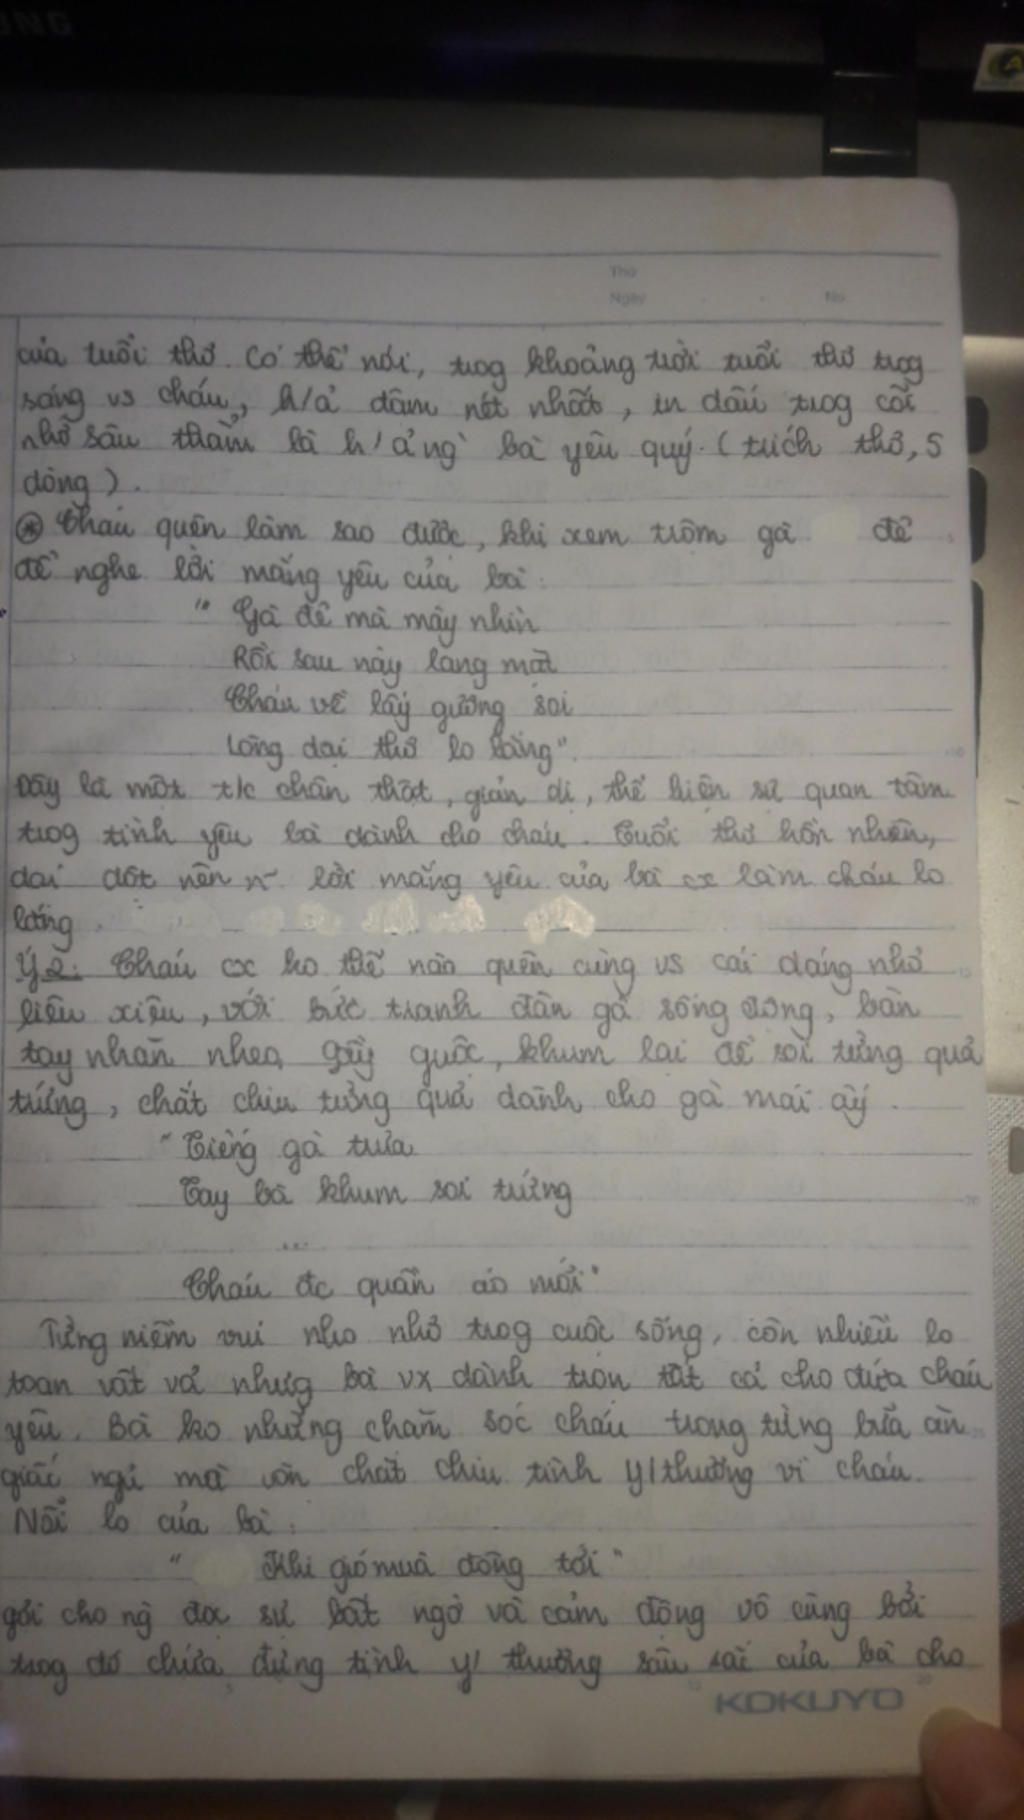 UNG
Thứ
Ngày No
của tuổi thơ. Có thể nói, trog khoảng trời tuổi thơ trog
sáng vs cháu, h/ả đậm nét nhất, in dấu trog cõi
nhớ sâu thẳm là h/ảng bà yêu quý. (trích thơ, 5
dòng).
* Cháu quên làm sao được, khi xem trộm gà để
đẻ nghe lời mắng yêu của bà:
" Gà đẻ mà mày nhìn
Rồi sau này lang mặt
Cháu về lấy gương soi
Lòng dại thơ lo lắng".
Đây là một t/c chân thật, giản dị, thể hiện sự quan tâm
trog tình yêu bà dành cho cháu. Tuổi thơ hồn nhiên,
dại dột nên n~ lời mắng yêu của bà cx làm cháu lo
lắng.
Ý 2: Cháu cx ko thể nào quên cùng vs cái dáng nhỏ
liêu xiêu, với bức tranh đàn gà sống động, bàn
tay nhăn nheo, gầy guộc, khum lại để soi từng quả
trứng, chắt chiu từng quả dành cho gà mái ấy.
" Tiếng gà trưa
Tay bà khum soi trứng
...
Cháu đc quần áo mới"
Từng niềm vui nho nhỏ trog cuộc sống, còn nhiều lo
toan vất vả nhưg bà vx dành trọn tất cả cho đứa cháu
yêu. Bà ko những chăm sóc cháu trong từng bữa ăn
giấc ngủ mà còn chắt chiu tình y/thương vì cháu.
Nỗi lo của bà:
" Khi gió mùa đông tới "
gợi cho ng đọc sự bất ngờ và cảm động vô cùng bởi
trog đó chứa đựng tình y/ thương sâu sắc của bà cho
KOKUYO